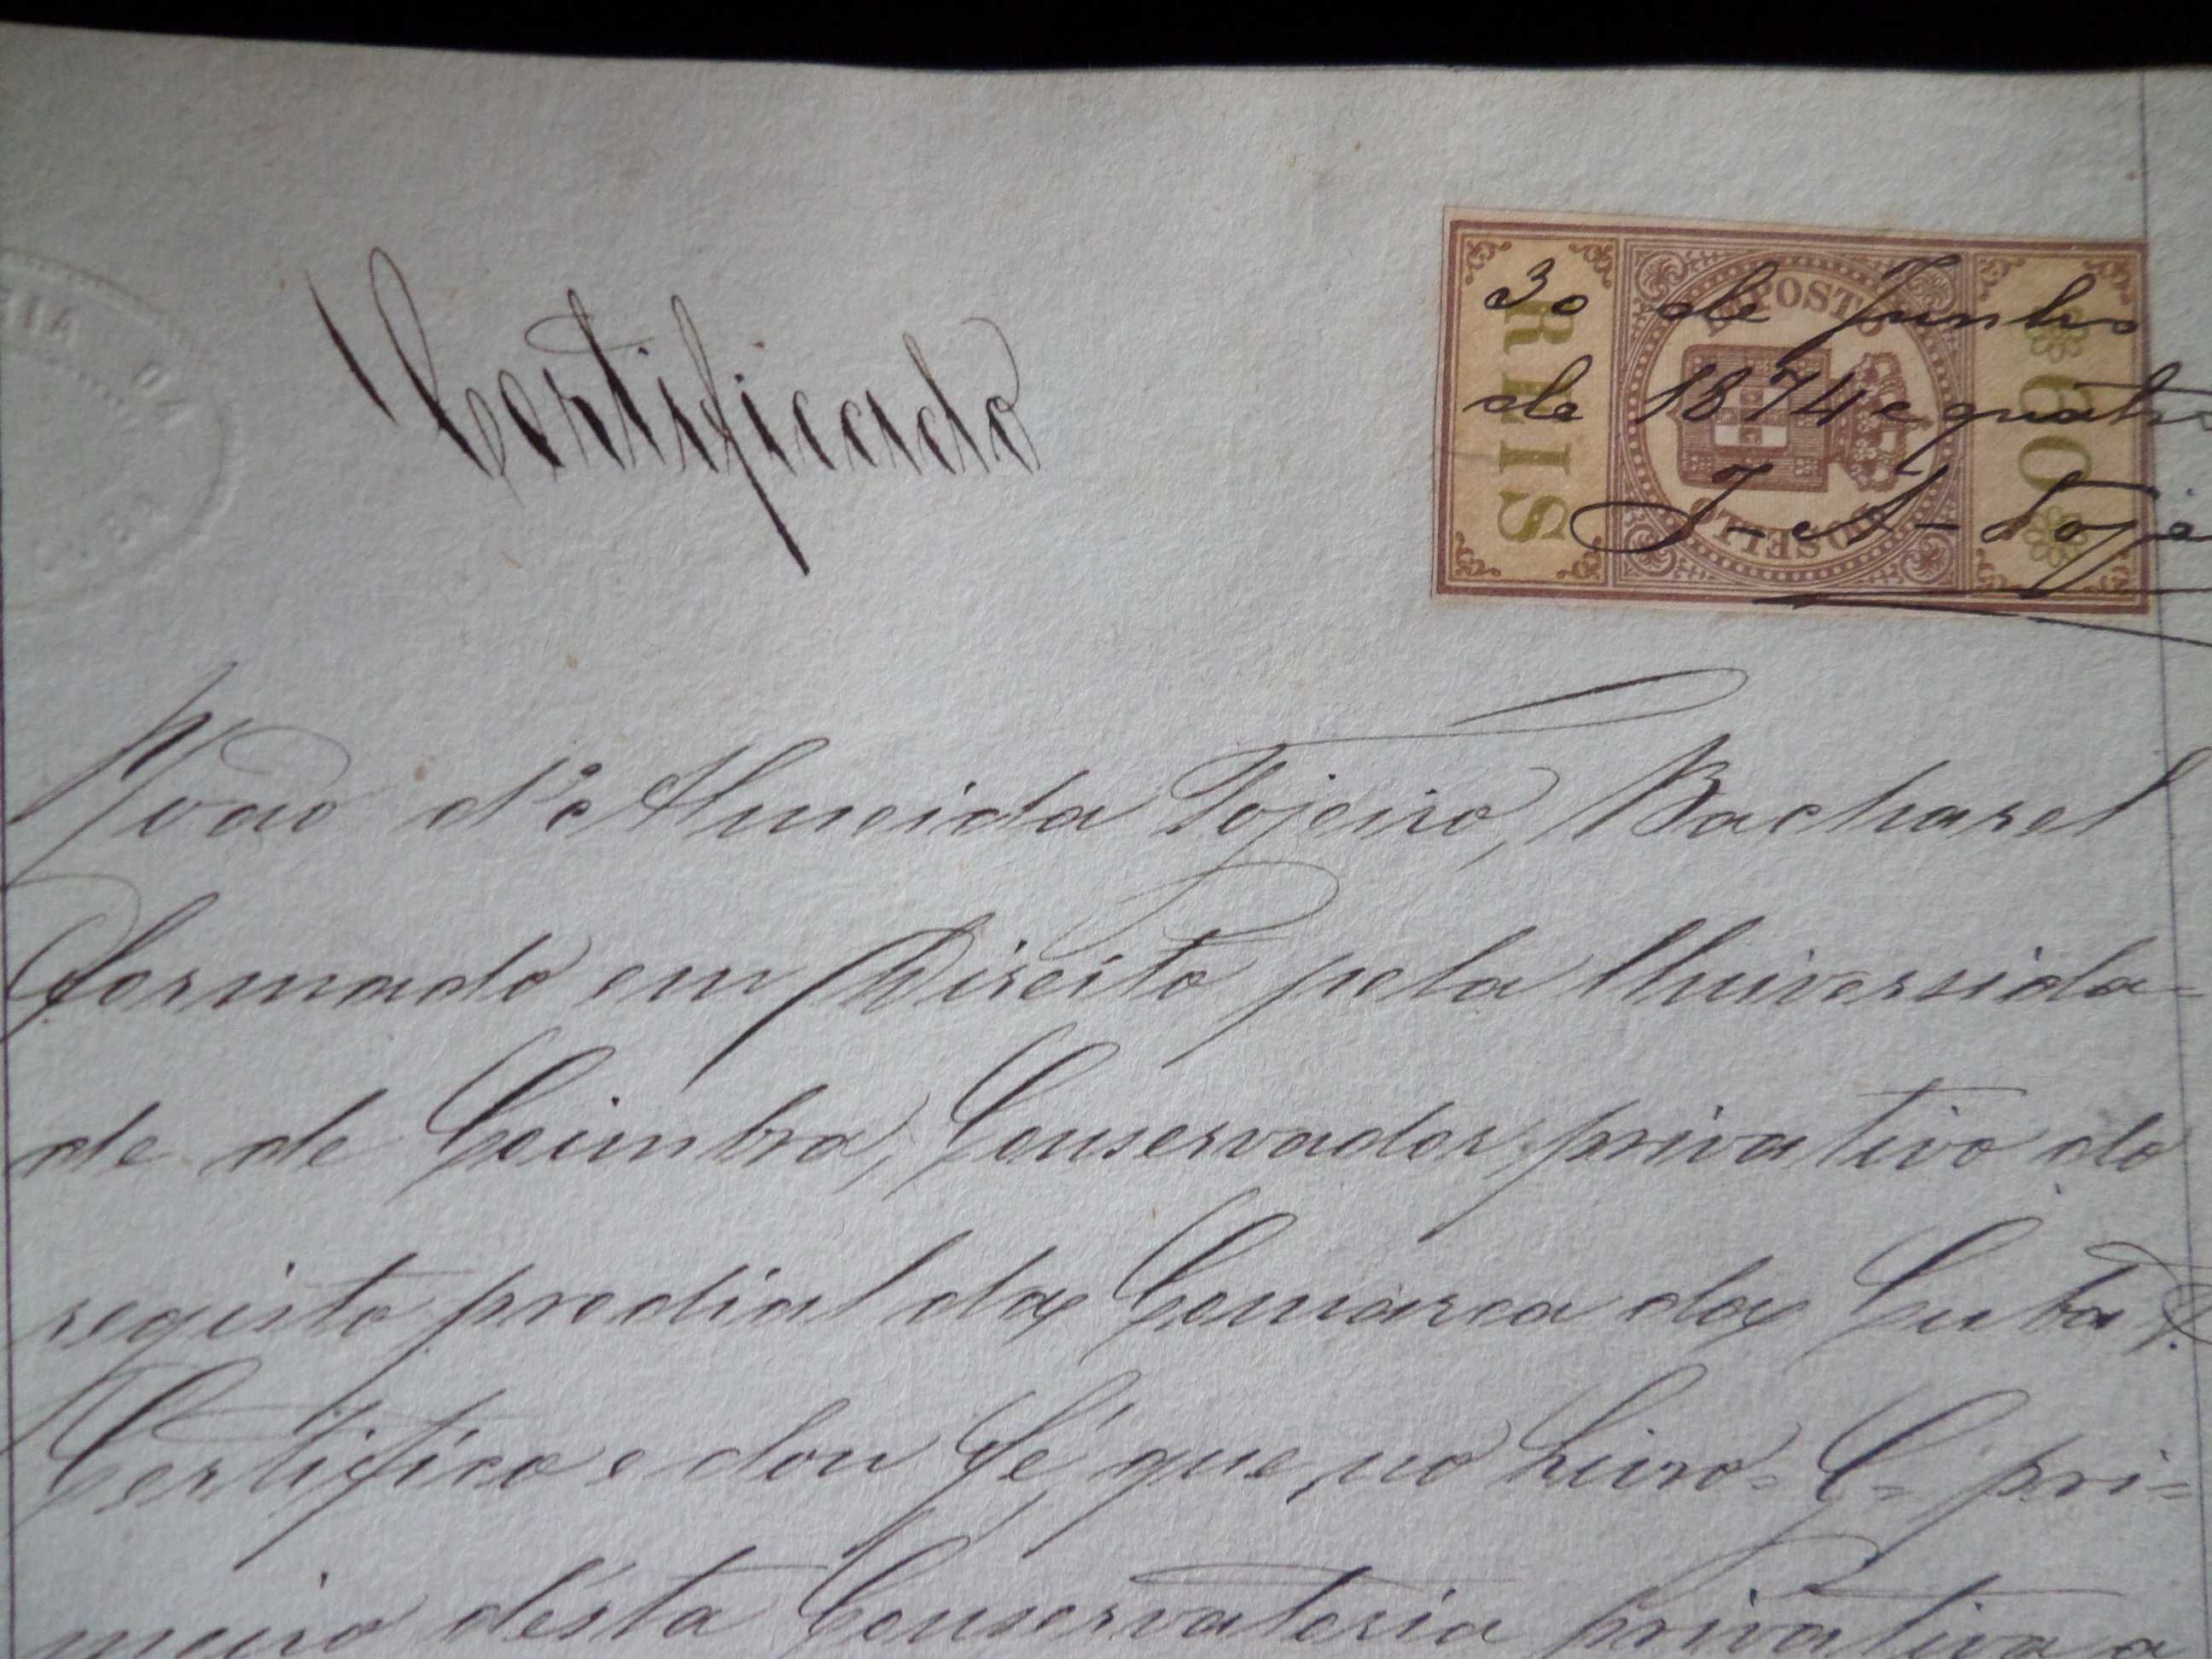 Certificado
IMPOSTO DO SELLO
REIS
60
30 de Junho
de 1874 e quatro
J. A. Toje
João d'Almeida Tojeiro, Bacharel
formado em Direito pela Universida=
de de Coimbra, Conservador privativo do
registo predial da Comarca da Cuba.
Certifico e dou fé, que, no Livro = C = pri=
meiro d'ésta Conservatoria privativa a